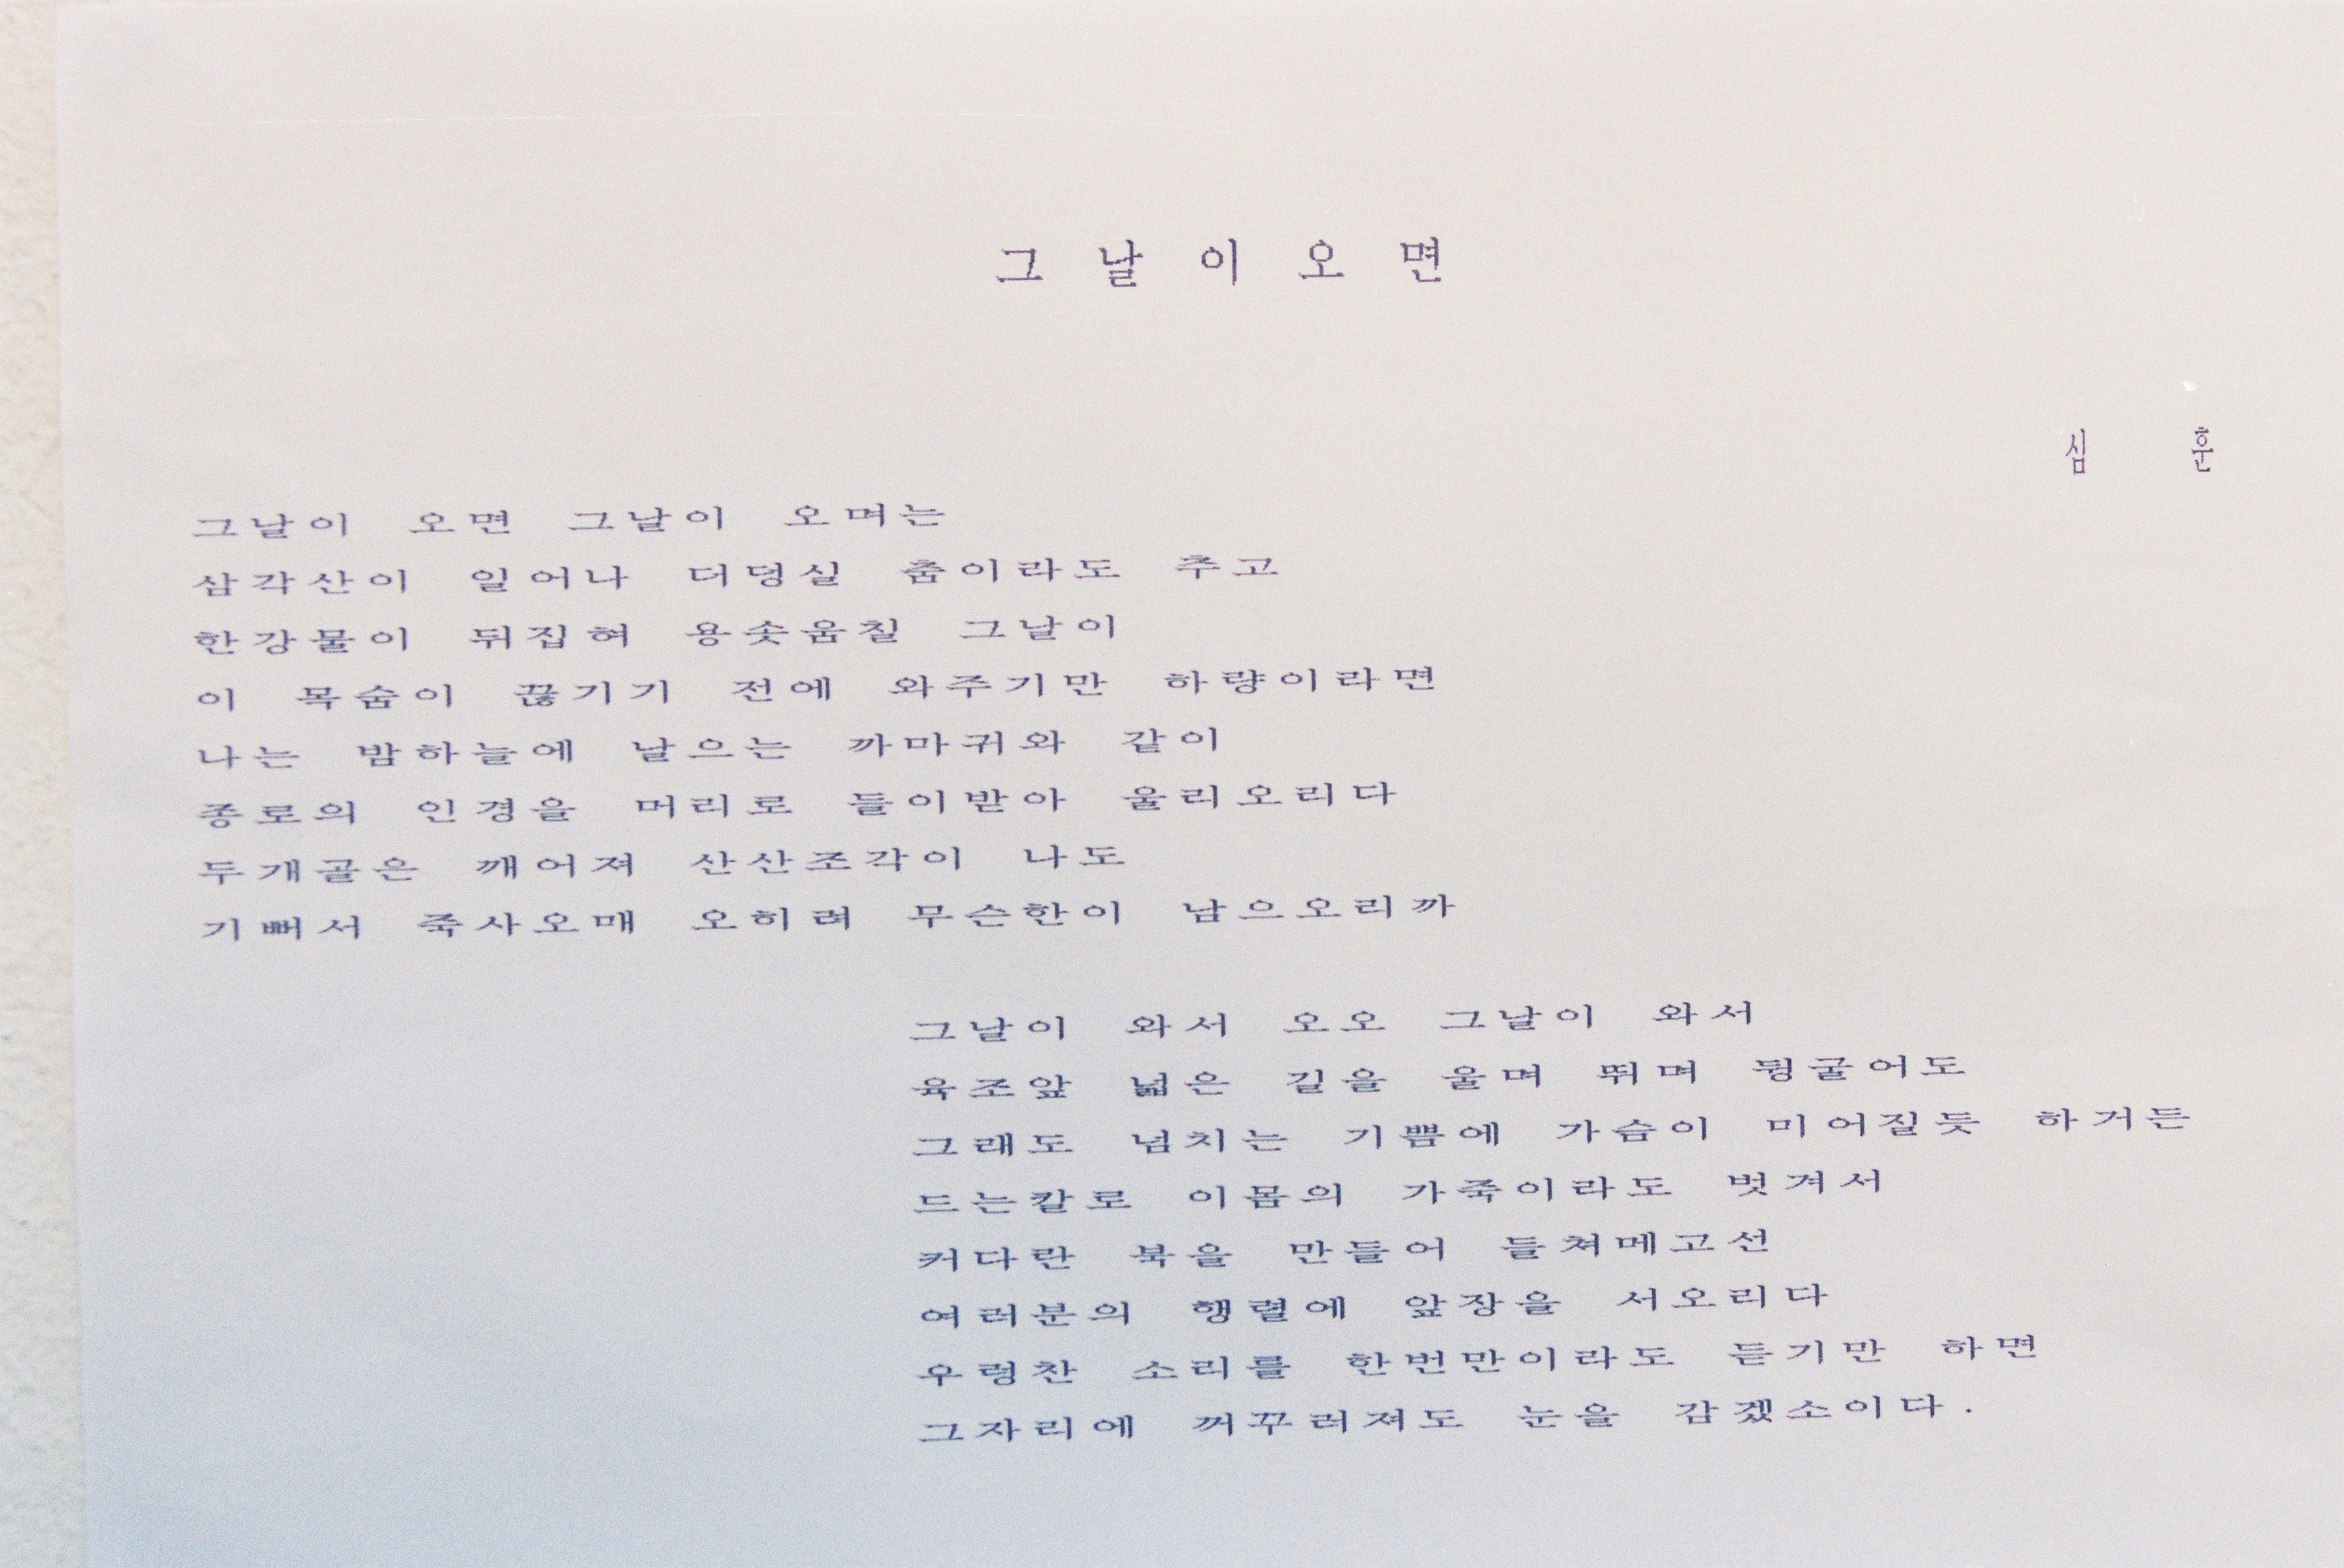 그날이오면
심 훈
그날이 오면 그날이 오며는
삼각산이 일어나 더덩실 춤이라도 추고
한강물이 뒤집혀 용솟움칠 그날이
이 목숨이 끊기기 전에 와주기만 하량이라면
나는 밤하늘에 날으는 까마귀와 같이
종로의 인경을 머리로 들이받아 울리오리다
두개골은 깨어져 산산조각이 나도
기뻐서 죽사오매 오히려 무슨한이 남으오리까
그날이 와서 오오 그날이 와서
육조앞 넓은 길을 울며 뛰며 뒹굴어도
그래도 넘치는 기쁨에 가슴이 미어질듯 하거든
드는칼로 이몸의 가죽이라도 벗겨서
커다란 북을 만들어 들쳐메고선
여러분의 행렬에 앞장을 서오리다
우렁찬 소리를 한번만이라도 듣기만 하면
그자리에 꺼꾸러져도 눈을 감겠소이다.